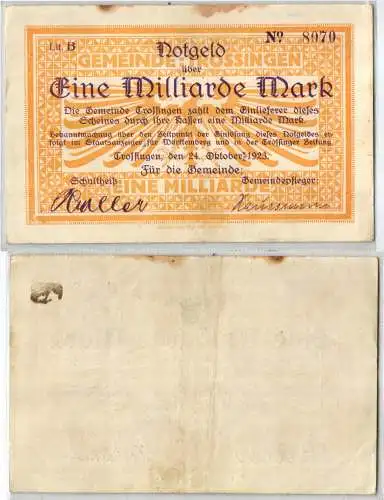 Lit. B
Nº 8070
Notgeld
über
GEMEINDE TROSSINGEN
Eine Milliarde Mark
Die Gemeinde Trossingen zahlt dem Einlieferer dieses
Scheines durch ihre Kassen eine Milliarde Mark.
Bekanntmachung über den Zeitpunkt der Einlösung dieses Notgeldes er-
folgt im Staatsanzeiger für Württemberg und in der Trossinger Zeitung.
Trossingen, den 24. Oktober 1923.
Für die Gemeinde:
Schultheiß: Gemeindepfleger:
EINE MILLIARDE